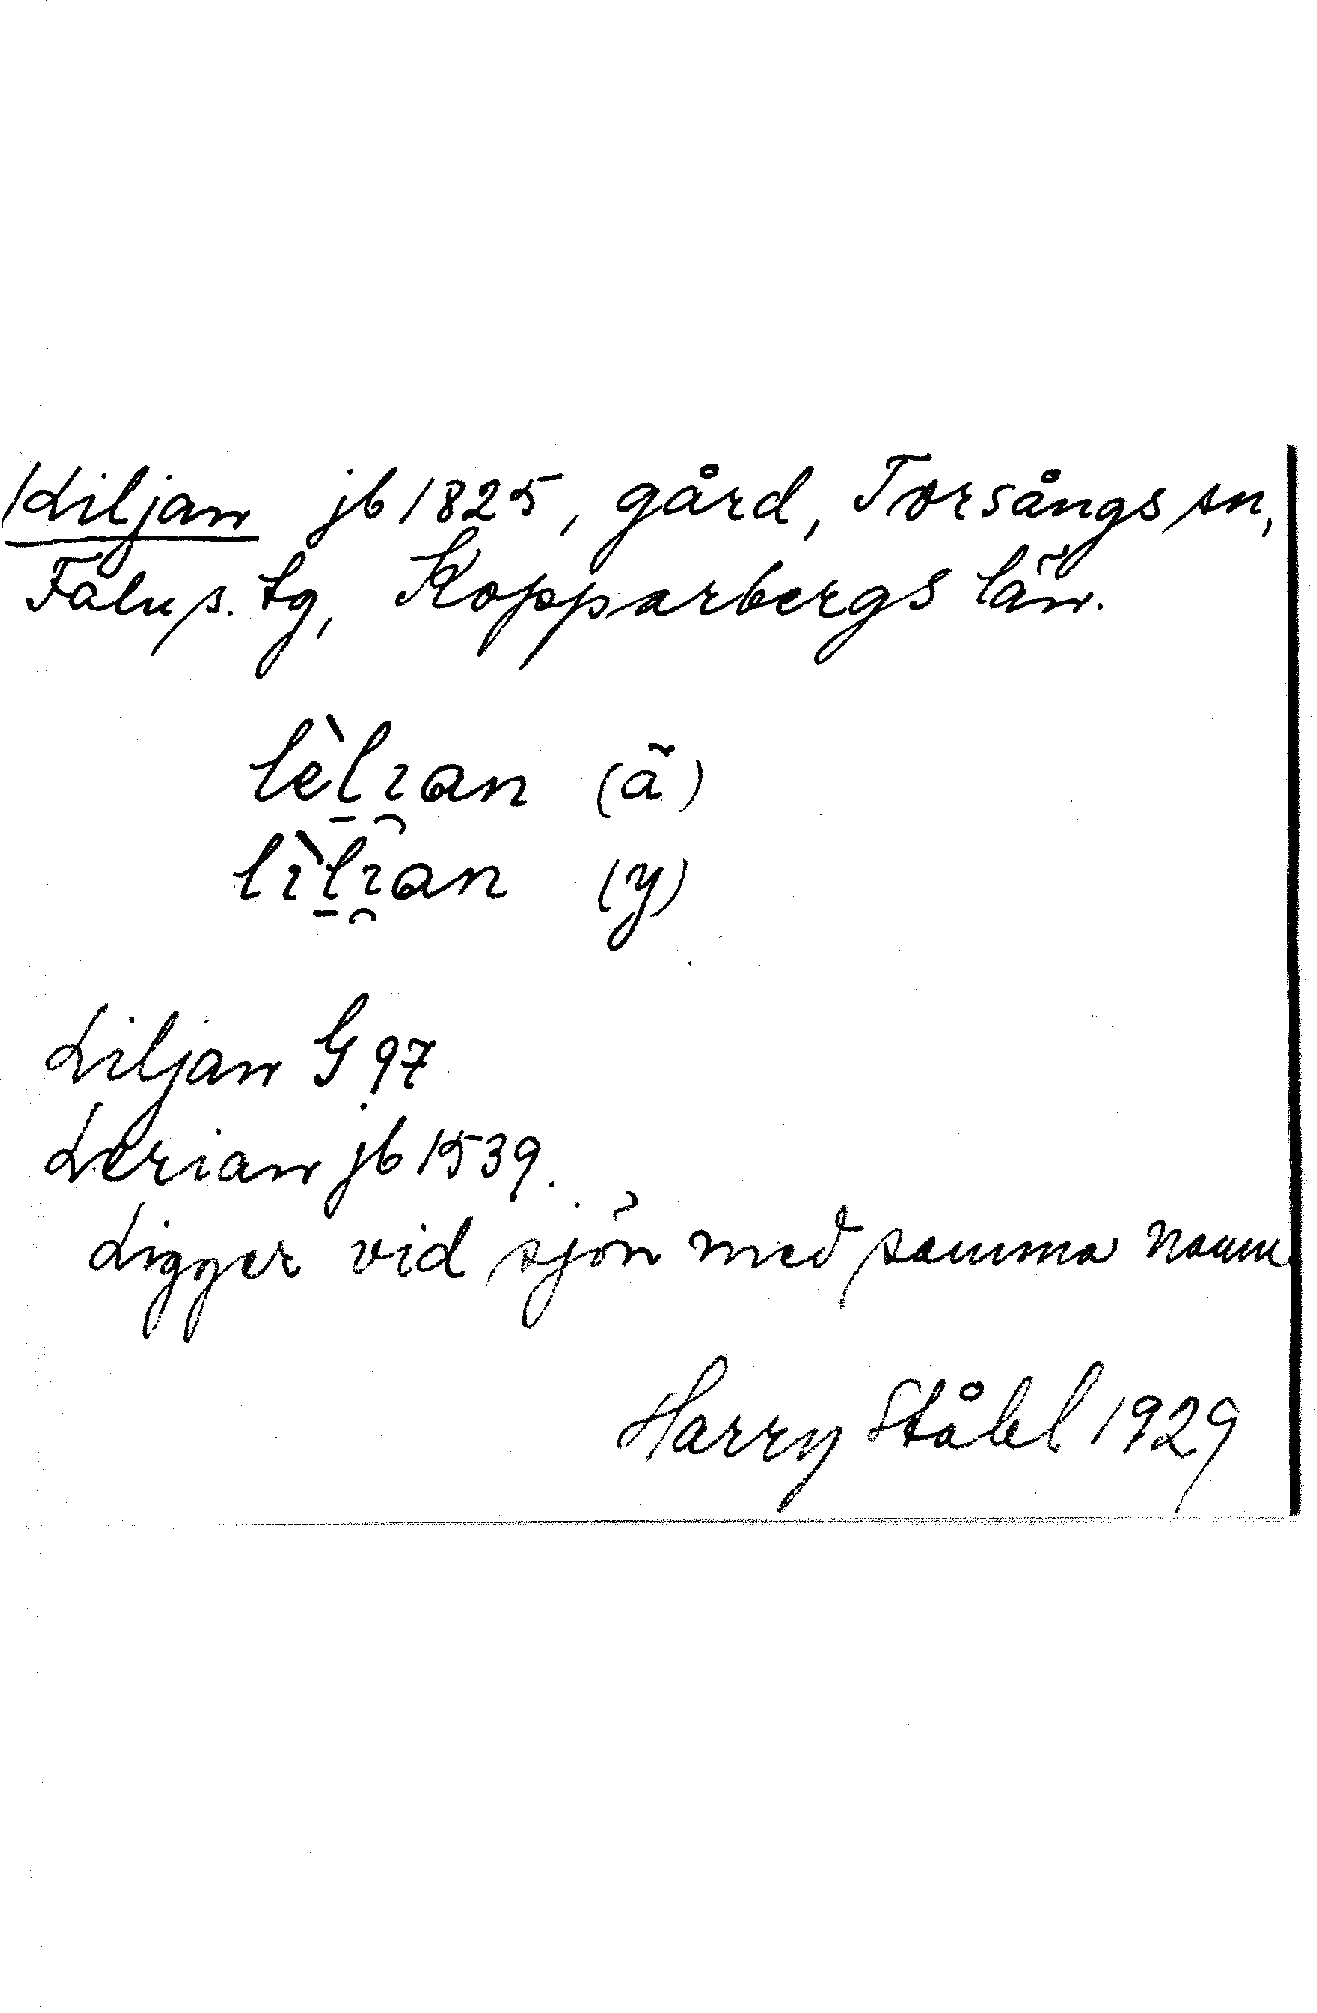 Liljan jb 1825, gård, Torsångs sn,
Falu s. tg, Kopparbergs län.
lèl̠ı̯an (ä)
lı̀l̠ı̯an (y)
Liljan G 97
Lerian jb 1539.
Ligger vid sjön med samma namn.
Harry Ståhl 1929